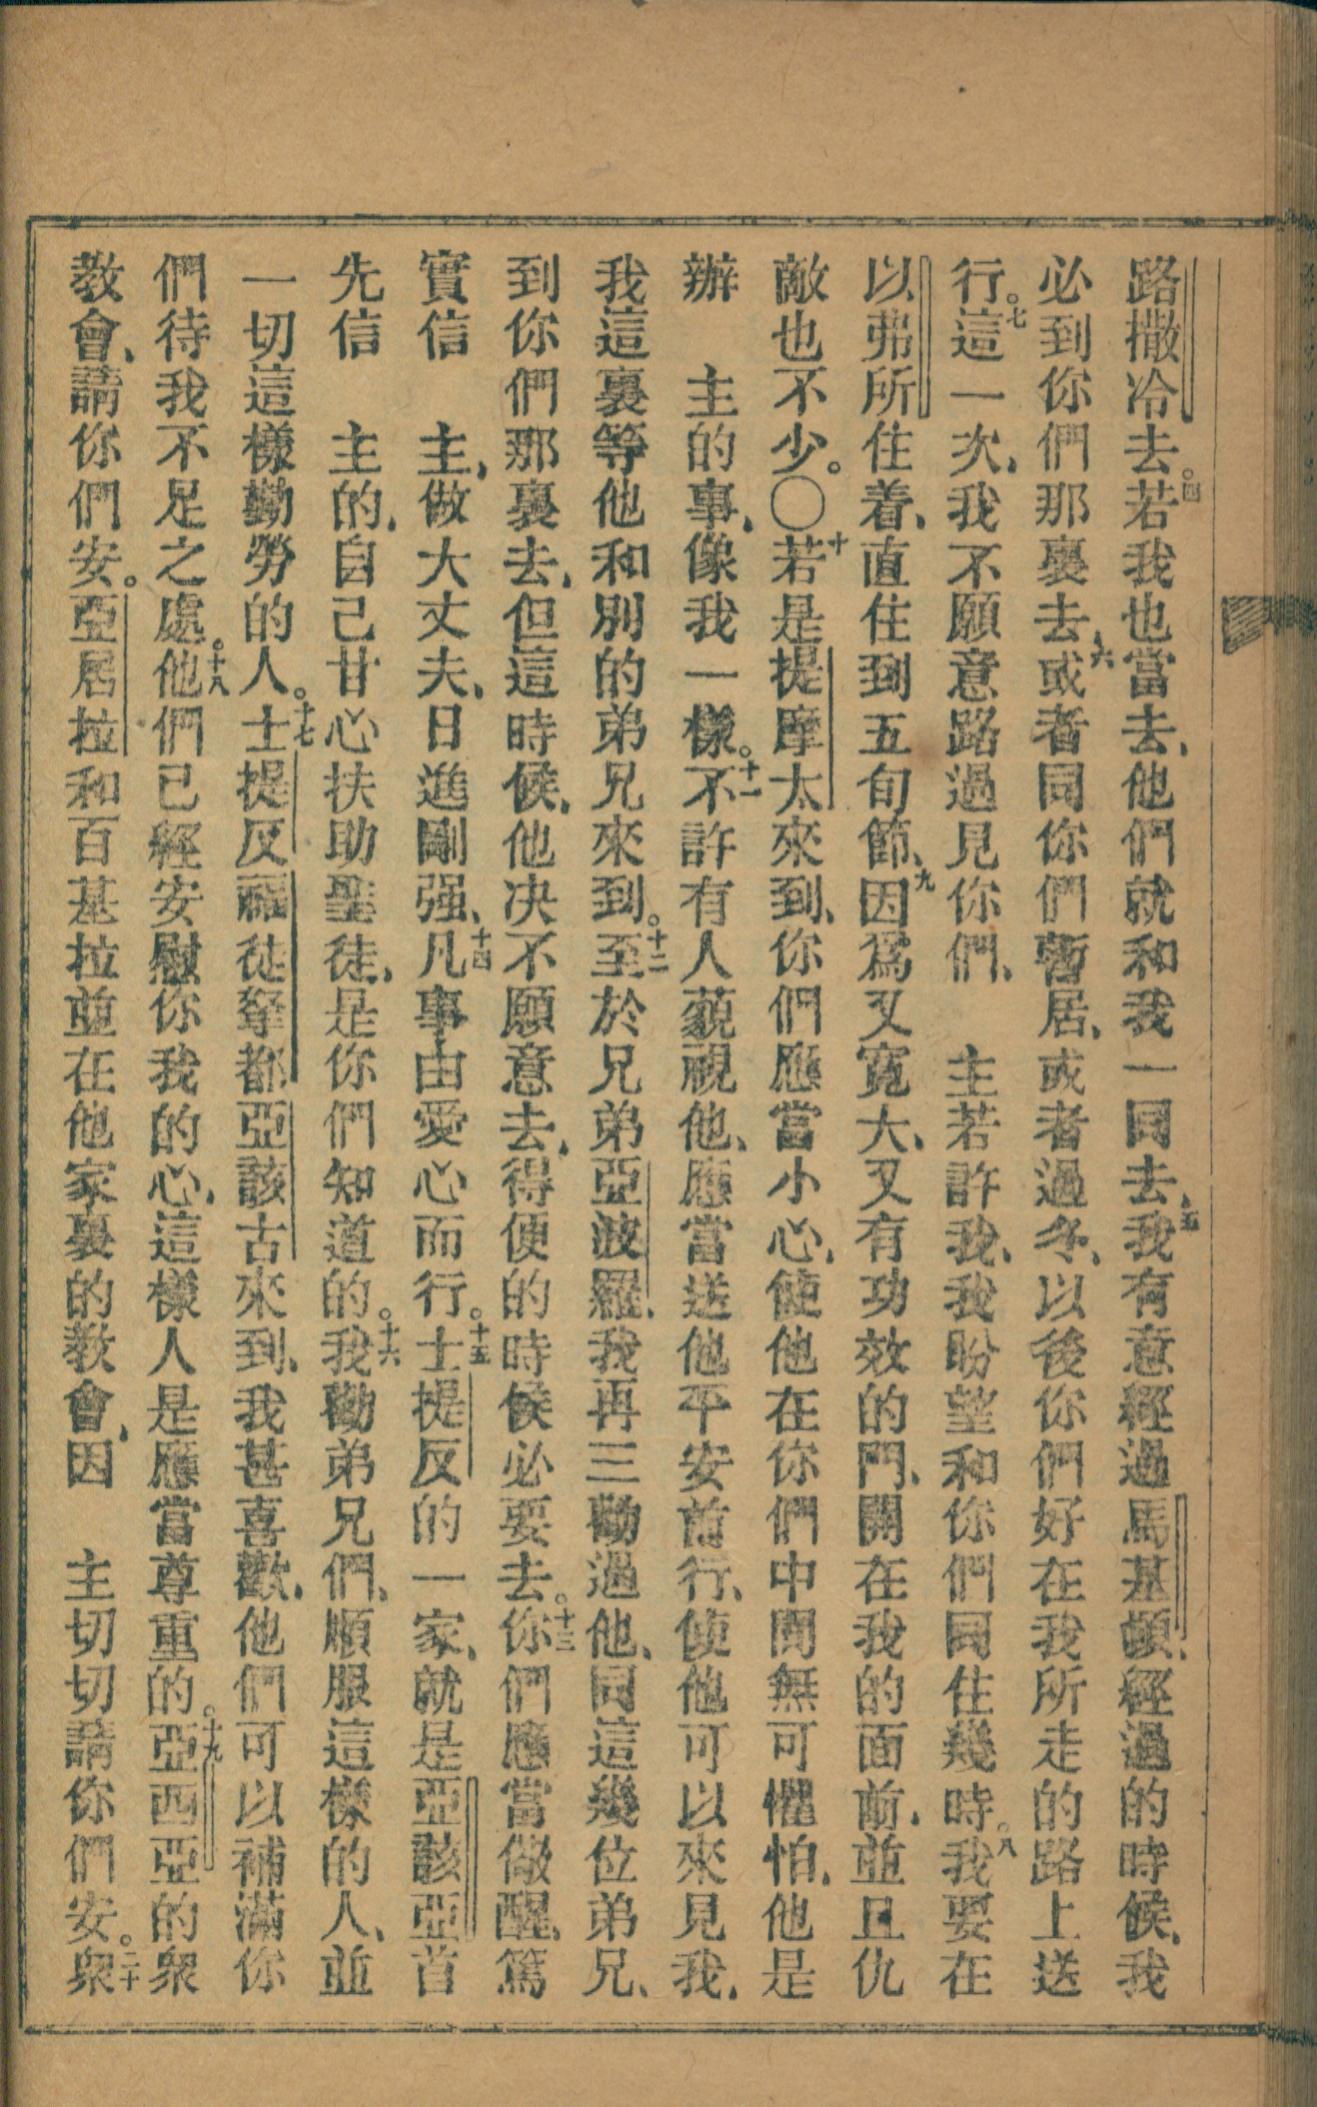 路撒冷去。四若我也當去、他們就和我一同去、五我有意經過馬基頓、經過的時候、我
必到你們那裏去、六或者同你們暫居、或者過冬、以後你們好在我所走的路上送
行。七這一次、我不願意路過見你們、　主若許我、我盼望和你們同住幾時。八我要在
以弗所住着、直住到五旬節、九因爲又寬大、又有功效的門、開在我的面前、並且仇
敵也不少。〇十若是提摩太來到、你們應當小心、使他在你們中間無可懼怕、他是
辦　主的事、像我一樣。十一不許有人藐視他、應當送他平安前行、使他可以來見我、
我這裏等他和別的弟兄來到。十二至於兄弟亞波羅、我再三勸過他、同這幾位弟兄、
到你們那裏去、但這時候、他决不願意去、得便的時候必要去。十三你們應當儆醒、篤
實信　主、做大丈夫、日進剛强、十四凡事由愛心而行。十五士提反的一家、就是亞該亞首
先信　主的、自己甘心扶助聖徒、是你們知道的。十六我勸弟兄們、順服這樣的人、並
一切這樣勤勞的人。十七士提反福徒拏都亞該古來到、我甚喜歡、他們可以補滿你
們待我不足之處。十八他們已經安慰你我的心、這樣人是應當尊重的。十九亞西亞的衆
教會、請你們安。亞居拉和百基拉並在他家裏的教會、因　主切切請你們安。二十衆